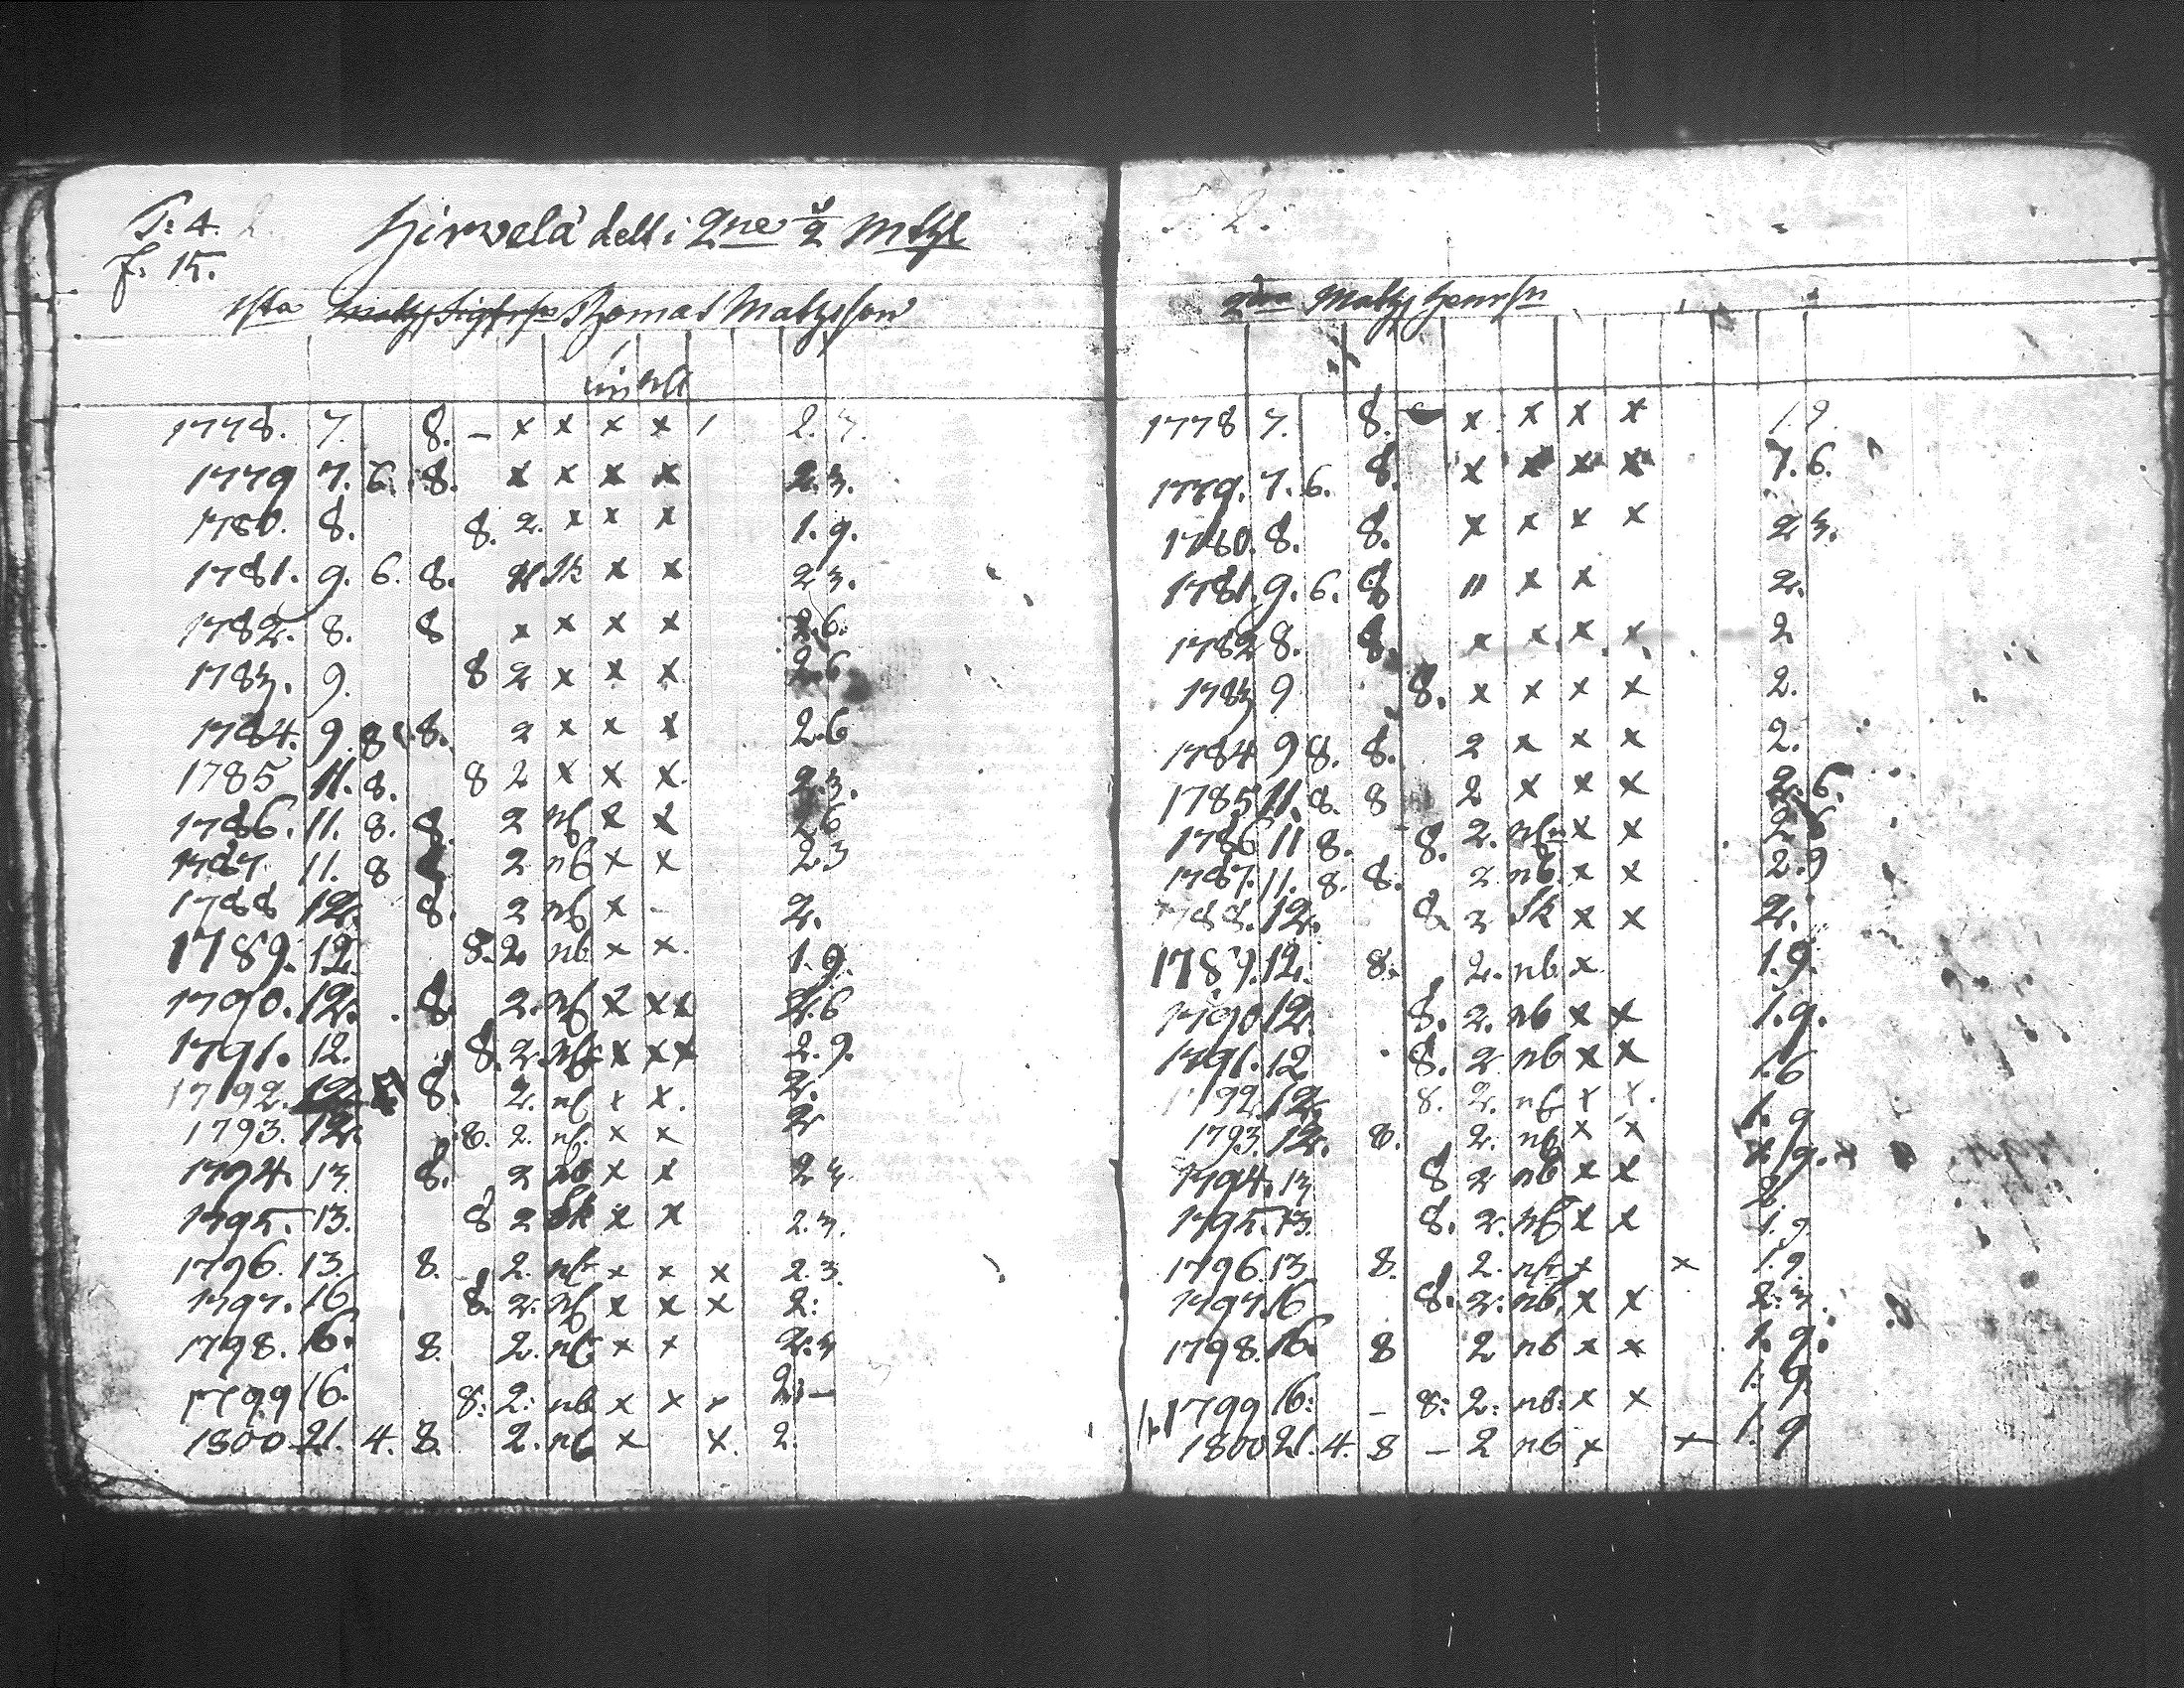 T: 4.
f. 15.
Hirvelä delt i 2ne ½ Mthl
1sta Thomas Matzsson
1778. 7. 8. – x x x x / 2. 7.
1779 7. 6. 8. x x x x 2. 3.
1780. 8. 8. 2. x x x 1. 9.
1781. 9. 6. 8. Sk x x 2 3.
1782. 8. 8 x x x x 2. 6.
1783. 9. 8 2 x x x 2. 6
1784. 9. 8. 8. 2 x x x 2. 6
1785 11. 8. 8 2 x x x 2. 3.
1786. 11. 8. 8. 2 nb x x 2 6
1787. 11. 8 8. 2 nb x x 2 3
1788 12. 8. 2 nb x – 2.
1789. 12. 8. 2. nb x x. 1. 9.
1790. 12. . 8. 2. nb x xx 2. 6
1791. 12. 8. 2. nb x xx 2. 9.
1792. 12. 8. 2. nb x x. 2.
1793. 12. 8. 2. nb. x x 2
1794. 13. 8. 2 nb x x 2 3.
1795. 13. 8 2 Sk x x 2. 3.
1796. 13. 8. 2. nb x x x 2. 3.
1797. 16 8. 2. nb x x x 2:
1798. 16. 8. 2. nb x x 2. 3
1799 16. 8: 2: nb x x x 2. –
1800 21. 4. 8. 2. nb x x. 2.
T. 2.
2dra Matz Henrsn
1778 7. 8. x x x x 1 9.
1779. 7. 6. 8. x x x x 7. 6.
1780. 8. 8. x x x x 2 3.
1781. 9. 6. 8 " x x 2.
1782 8. 8. x x x x 2
1783 9 8. x x x x 2.
1784 9 8. 8. 2 x x x 2.
1785 11. 8. 8 2 x x x 2. 6.
1786 11 8. 8. 2. nb x x 2 6
1787. 11. 8. 8. 2 nb. x x 2. 9
1788. 12. 8. 2 Sk x x 2.
1789. 12. 8. 2. nb x 1. 9.
1790 12. 8. 2. nb x x 1. 9.
1791. 12 8. 2 nb x x 1. 6
1792. 12. 8. 2. nb x x. 1. 9
1793. 12. 8. 2. nb x x 1 9.
1794. 13 8 2 nb x x 2
1795. 13. 8. 2. nb x x 1. 9.
1796. 13 8. 2. nb x x 1. 9.
1797. 16 8. 2: nb. x x 2: 3.
1798. 16. 8 2 nb x x 1. 9.
1799 16: – 8: 2: nb: x x 1: 9.
1800 21. 4. 8 – 2 nb x x 1. 9